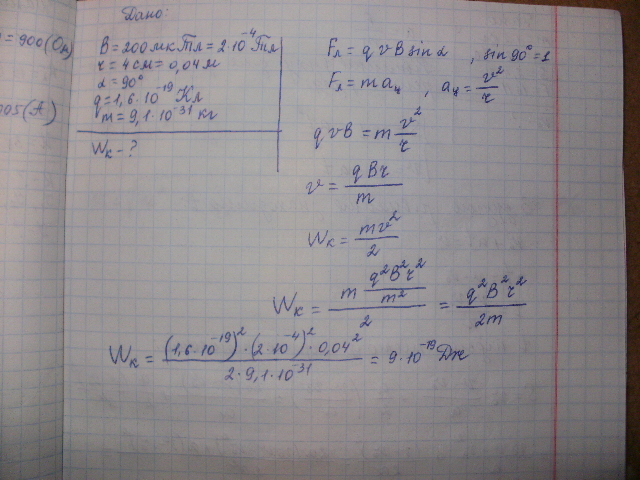 Дано:
= 900 (Ом)
005 (А)
B = 200 мкТл = 2·10⁻⁴ Тл
r = 4 см = 0,04 м
α = 90°
q = 1,6·10⁻¹⁹ Кл
m = 9,1·10⁻³¹ кг
Wк - ?
Fл = q v B sin α , sin 90° = 1
Fл = m aц , aц = v²/r
q v B = m v²/r
v = qBr/m
Wк = mv²/2
Wк = (m q²B²r²/m²)/2 = q²B²r²/2m
Wк = (1,6·10⁻¹⁹)²·(2·10⁻⁴)²·0,04²/2·9,1·10⁻³¹ = 9·10⁻¹⁹ Дж